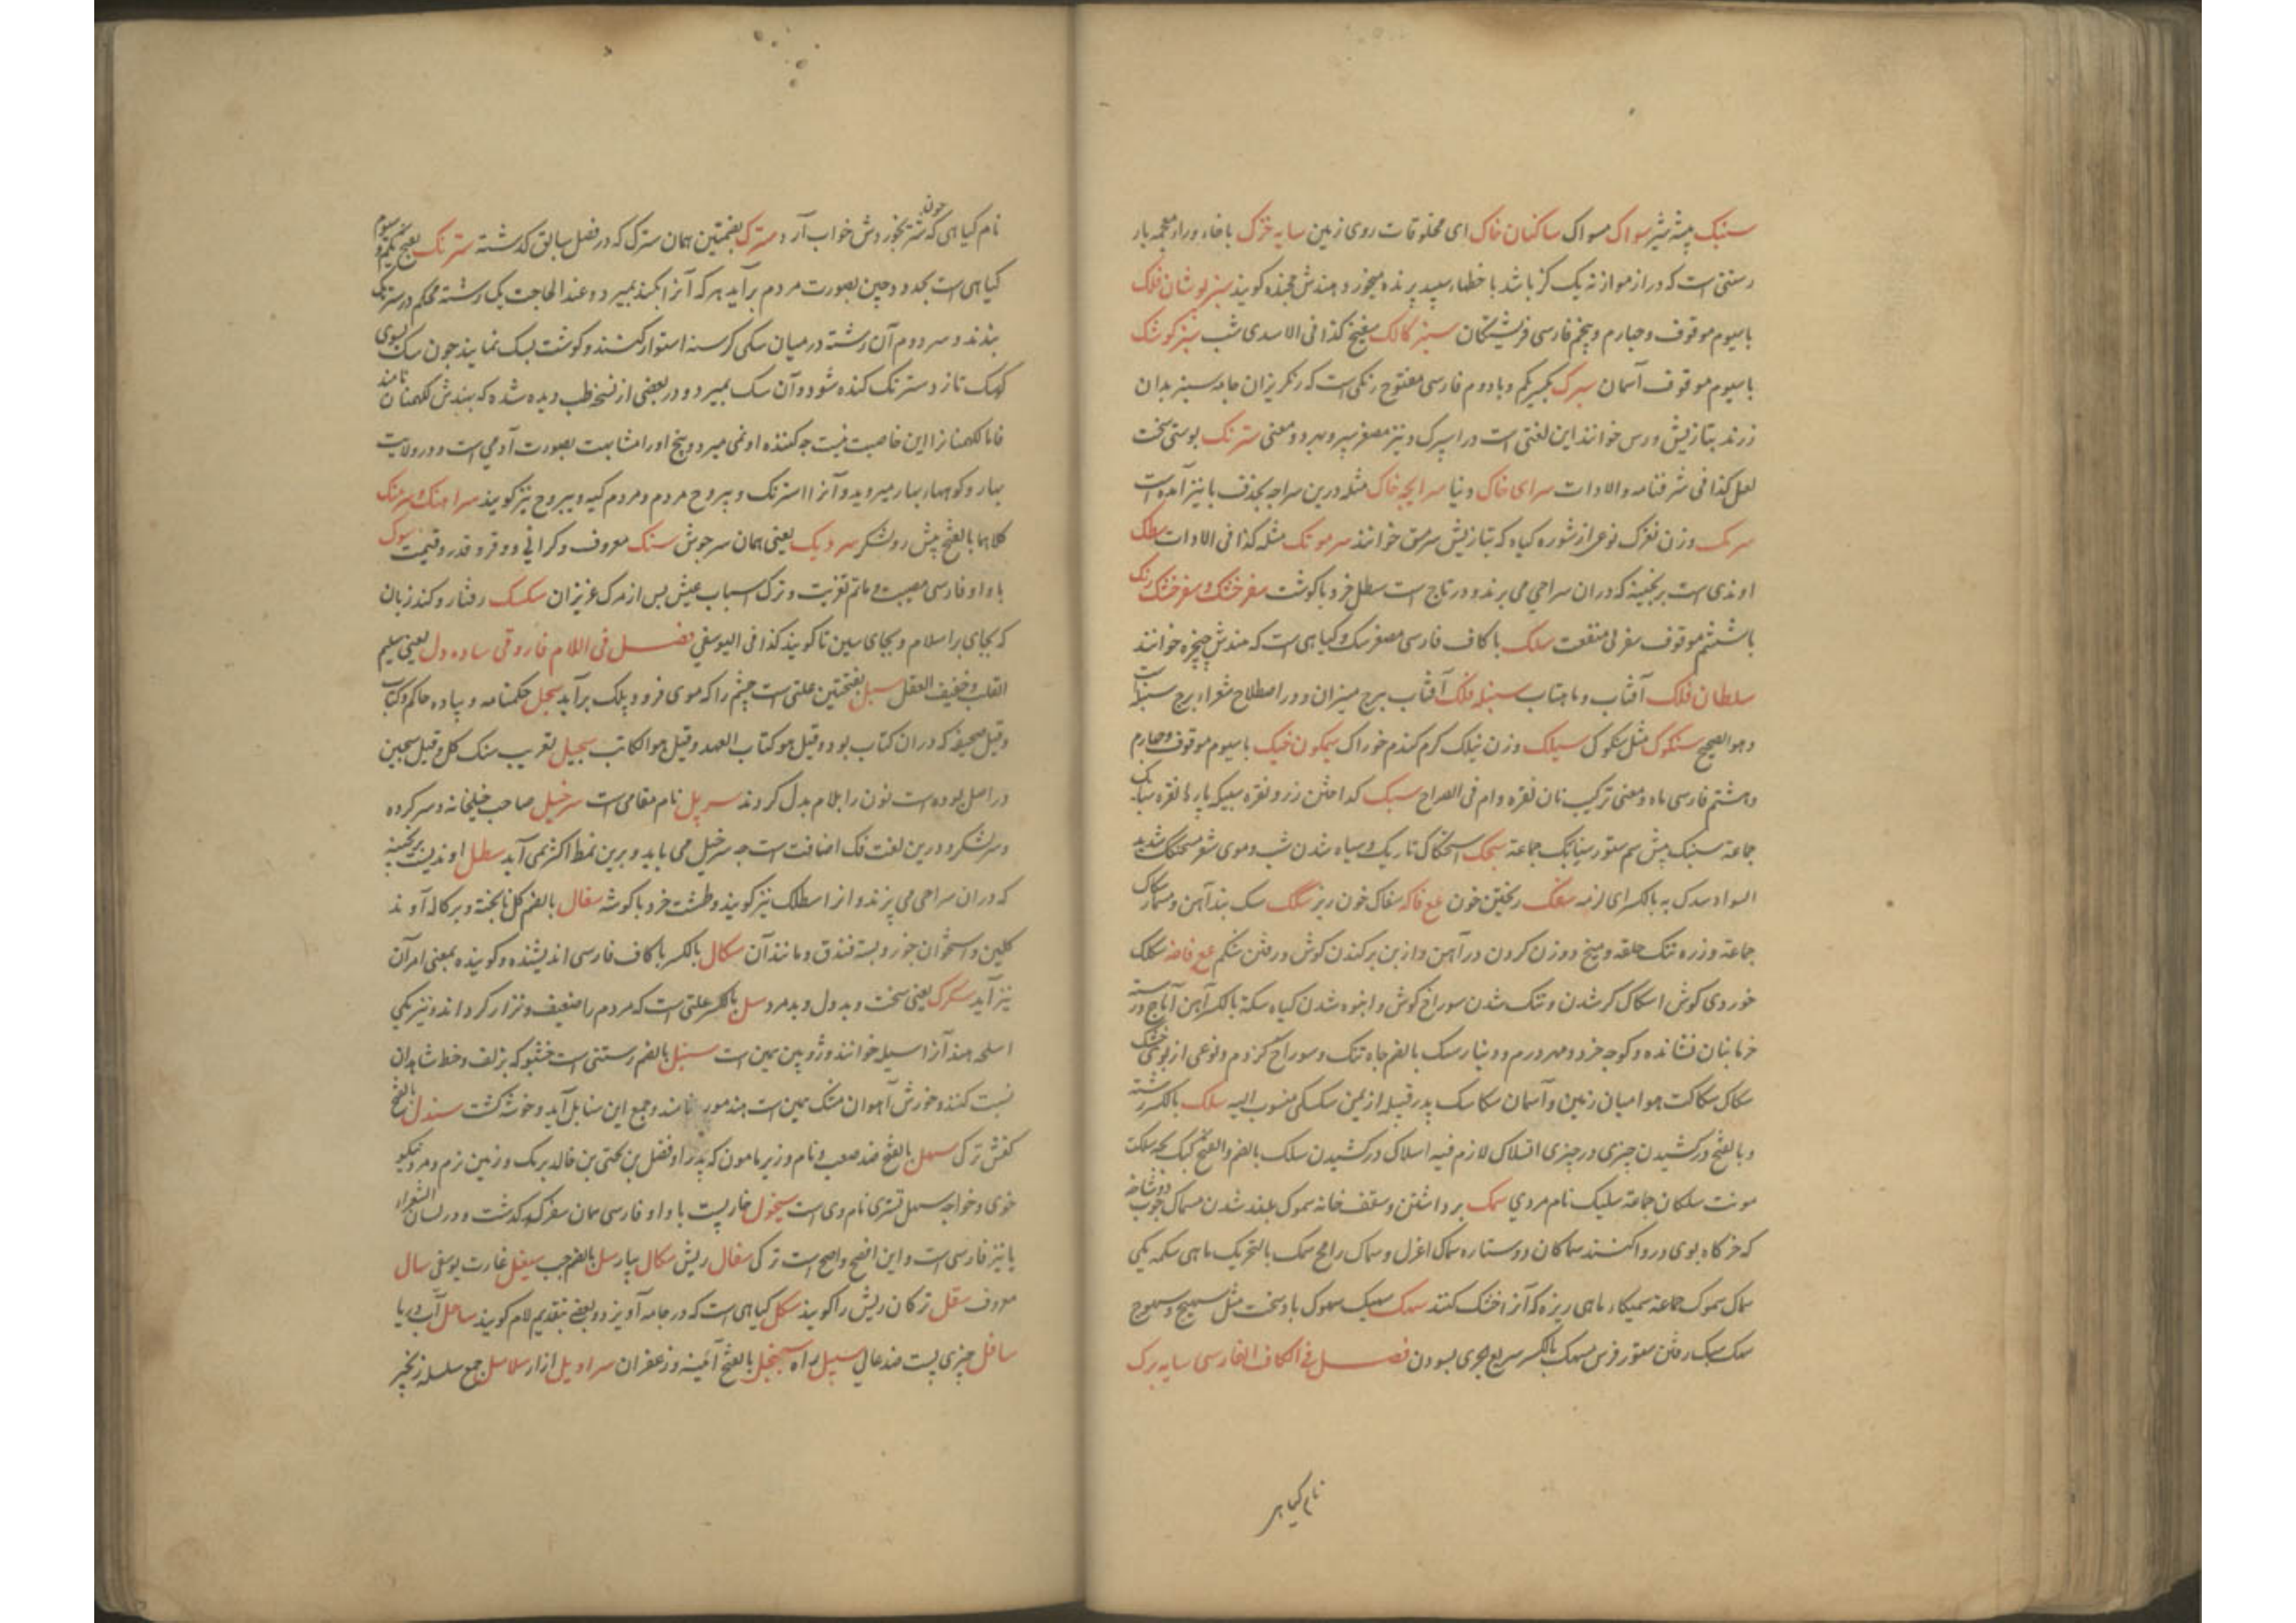 سنبک پیشه شیر سواک مسواک ساکنان خاک ای مخلوقات روی زمین سایه خزک باخاء وراء معجمه یار
رستنی است که دراز موازنه یک کز باشد با خطهاء سپید پرنده میخورد و هندش خوانند کویند سبز پوشان فلک
باسیوم موقوف وچهارم وپنجم فارسی فرشتکان سبز کالک کذا فی الاسدی شب سبز کوشک
باسیوم موقوف آسمان سپرک بکسر یکم وبا دوم فارسی مفتوح رنکی است که رنکریزان جامه سبز بدان
زرند بتازیش ورس خوانند این لغتی است در اسپرک و نیز مصغر سپر و معنی سترنک پوستی سخت
لعل کذا فی شرفنامه والادات سرای خاک دنیا سراچه خاک مثله درین سراچه بحذف یا نیز آمده است
سرمک وزن نغزک نوعی از شوره کیاه که بتازیش سرمق خوانند سرموتک مثله کذا فی الادات سطلک
اوندی است برنجینه که دران سراحی می برند و در تاج است سطل خرد با کوشت سفرخنک وسفرخنک رنک
باششم موقوف سفر بی منفعت سلک باکاف فارسی مصغر سک وکیاهی است که هندش چچره خوانند
سلطان فلک آفتاب و ماهتاب سنبله فلک آفتاب ببرج میزان و در اصطلاح شعراء برج سنبله است
وهو الصحیح سنکوک مثل شکوک سیلک وزن نیلک کرم کندم خوراک سیمکون خیک باسیوم موقوف وچهارم
وهشتم فارسی ماه ومعنی ترکیب نان نقره وام فی الصراح سبک کداختن زر و نقره سبیکه پارهٔ نقره سبایک
جماعة سنبک پیش سم ستور سنابک جماعة سحک اسحکاک تاریک وسیاه شدن شب وموی شعر مسحنکک شدید
السواد سدک به بالکسر ای لزمه سفک ریختن خون عع فاکه سفاک خون ریز سکک سک بند آهن و مسمار سکاک
جماعة وزره تنک حلقه ومیخ دوزن کردن در آهن وازبن برکندن کوش ورفتن شکم عع فاضه سکک
خوردی کوش اسکاک کر شدن وتنک شدن سوراخ کوش وانبوه شدن کیاه سکة بالکسر آهن آماج ورسته
خرما بنان نشانده وکوچه خرد ومهر درم ودینار سک بالضم چاه تنک وسوراخ کژدم ونوعی از بوی خشک
سکاک سکاکت هوا میان زمین وآسمان سکاسک پدر قبیله از یمن سکسکی منسوب الیه سلک بالکسر رشته
وبالفتح درکشیدن چیزی در چیزی انسلاک لازم فیه اسلاک درکشیدن سلک بالضم والفتح کبک بچه سلکت
مونث سلکان جماعة سلیک نام مردی سمک برداشتن وسقف خانه سموک بلند شدن مسماک چوب دوشاخه
که خرکاه بوی دروا کنند سماکان دو ستاره سماک اعزل وسماک رامح سمک بالتحریک ماهی سمکه یکی
سماک سموک جماعة سمیکاء ماهی ریزه که آنرا خشک کنند سهک سهیک سهوک باد سخت مثل سیهج وسیهوج
سهک سبک رفتن ستور فرس مسهک بالکسر سریع الجری بسودن فصل فی الکاف الفارسی سایه برک
نام کیاهی
نام کیاهی که چون شتر بخوردش خواب آرد سترک بضمتین همان سترک که در فصل سابق کذشته سترنک بفتح یکم وسیوم
کیاهی است بحدود چین بصورت مردم برآید هر که آنرا بکند بمیرد وعند الحاجت یک رشته محکم در سترنک
بندند وسر دوم آن رشته در میان سکی کرسنه استوار کنند وکوشت بسک نمایند چون سک بسوی
کهک تازد سترنک کنده شود وآن سک بمیرد ودر بعضی از نسخ طب دیده شده که بهندش لکهمنا نامند
فاما لکهمنا را این خاصیت نیست چه کننده او نمی میرد وبیخ اورا مشابهت بصورت آدمی است ودر ولایت
بهار وکوهها بسیار میروید وآنرا استرنک ویبروح مردم ومردم کیه ویبروج نیز کویند سراهنک وسرهنک
کلاهما بالفتح پیش رو لشکر سردیک یعنی همان سرجوش سنک معروف وکرانی ووقر وقدر وقیمت سوک
باواو فارسی مصیبت وماتم تعزیت وترک اسباب عیش پس از مرک عزیزان سکسک رفتار وکند زبان
که بجای را سلام وبجای سین تا کویند کذا فی الیوسفی فصل فی اللام فاروقی ساده دل یعنی سلیم
القلب وخفیف العقل سبل بفتحتین علتی است چشم را که موی فرود پلک برآید سجل حکمنامه وپیاده حاکم وکتاب
وقیل صحیفه که دران کتاب بود وقیل هو کتاب العهد وقیل هو الکاتب سجیل تعریب سنک کل وقیل سجین
در اصل بوده است نون را بلام بدل کردند سرپل نام مقامی است سرخیل صاحب خیلخانه وسرکرده
وسر لشکر ودرین لغت فک اضافت است چه سر خیل می باید وبرین نمط اکثر می آید سطل اوندیست برنجینه
که دران سراحی می پزند وانرا سطلک نیز کویند وطشت خرد با کوشه سفال بالضم کل ناپخته وپرکاله آوند
کلین واستخوان جوز وپسته فندق ومانند آن سکال بالکسر باکاف فارسی اندیشنده وکوینده بمعنی امر آن
نیز آید سکرک یعنی سخت وبددل وبدمرد سل بالکسر علتی است که مردم را ضعیف ونزار کرداند ونیز یکی
اسلحه هند آنرا اسیله خوانند وژوپین همین است سنبل بالضم رستنی است خشبو که بزلف وخط شاهدان
نسبت کنند وخورش آهوان مشک همین است هندش نامند وجمع این سنابل آید وخوشه کشت سندل بالفتح
کفش ترک سهل بالفتح ضد صعب ونام وزیر مامون که پدر او فضل بن یحیی بن خالد برمک وزمین نرم ومرد نیکو
خوی وخواجه سهل تستری نام وی است سیخول خارپشت باواو فارسی همان سفر که کذشت ودر لسان الشعراء
یا نیز فارسی است واین افصح واصح است ترکی سقال ریش سکال بیار سل بالضم جب سیغل غارت یوسفی سال
معروف سقل ترکان ریش را کویند سکل کیاهی است که در جامه آویزد وبعضی بتقدیم لام کویند ساحل آب دریا
سافل چیزی پست ضد عالی سبیل راه سجنجل بالفتح آئینه وزعفران سراویل ازار سلاسل جمع سلسله زنجیر